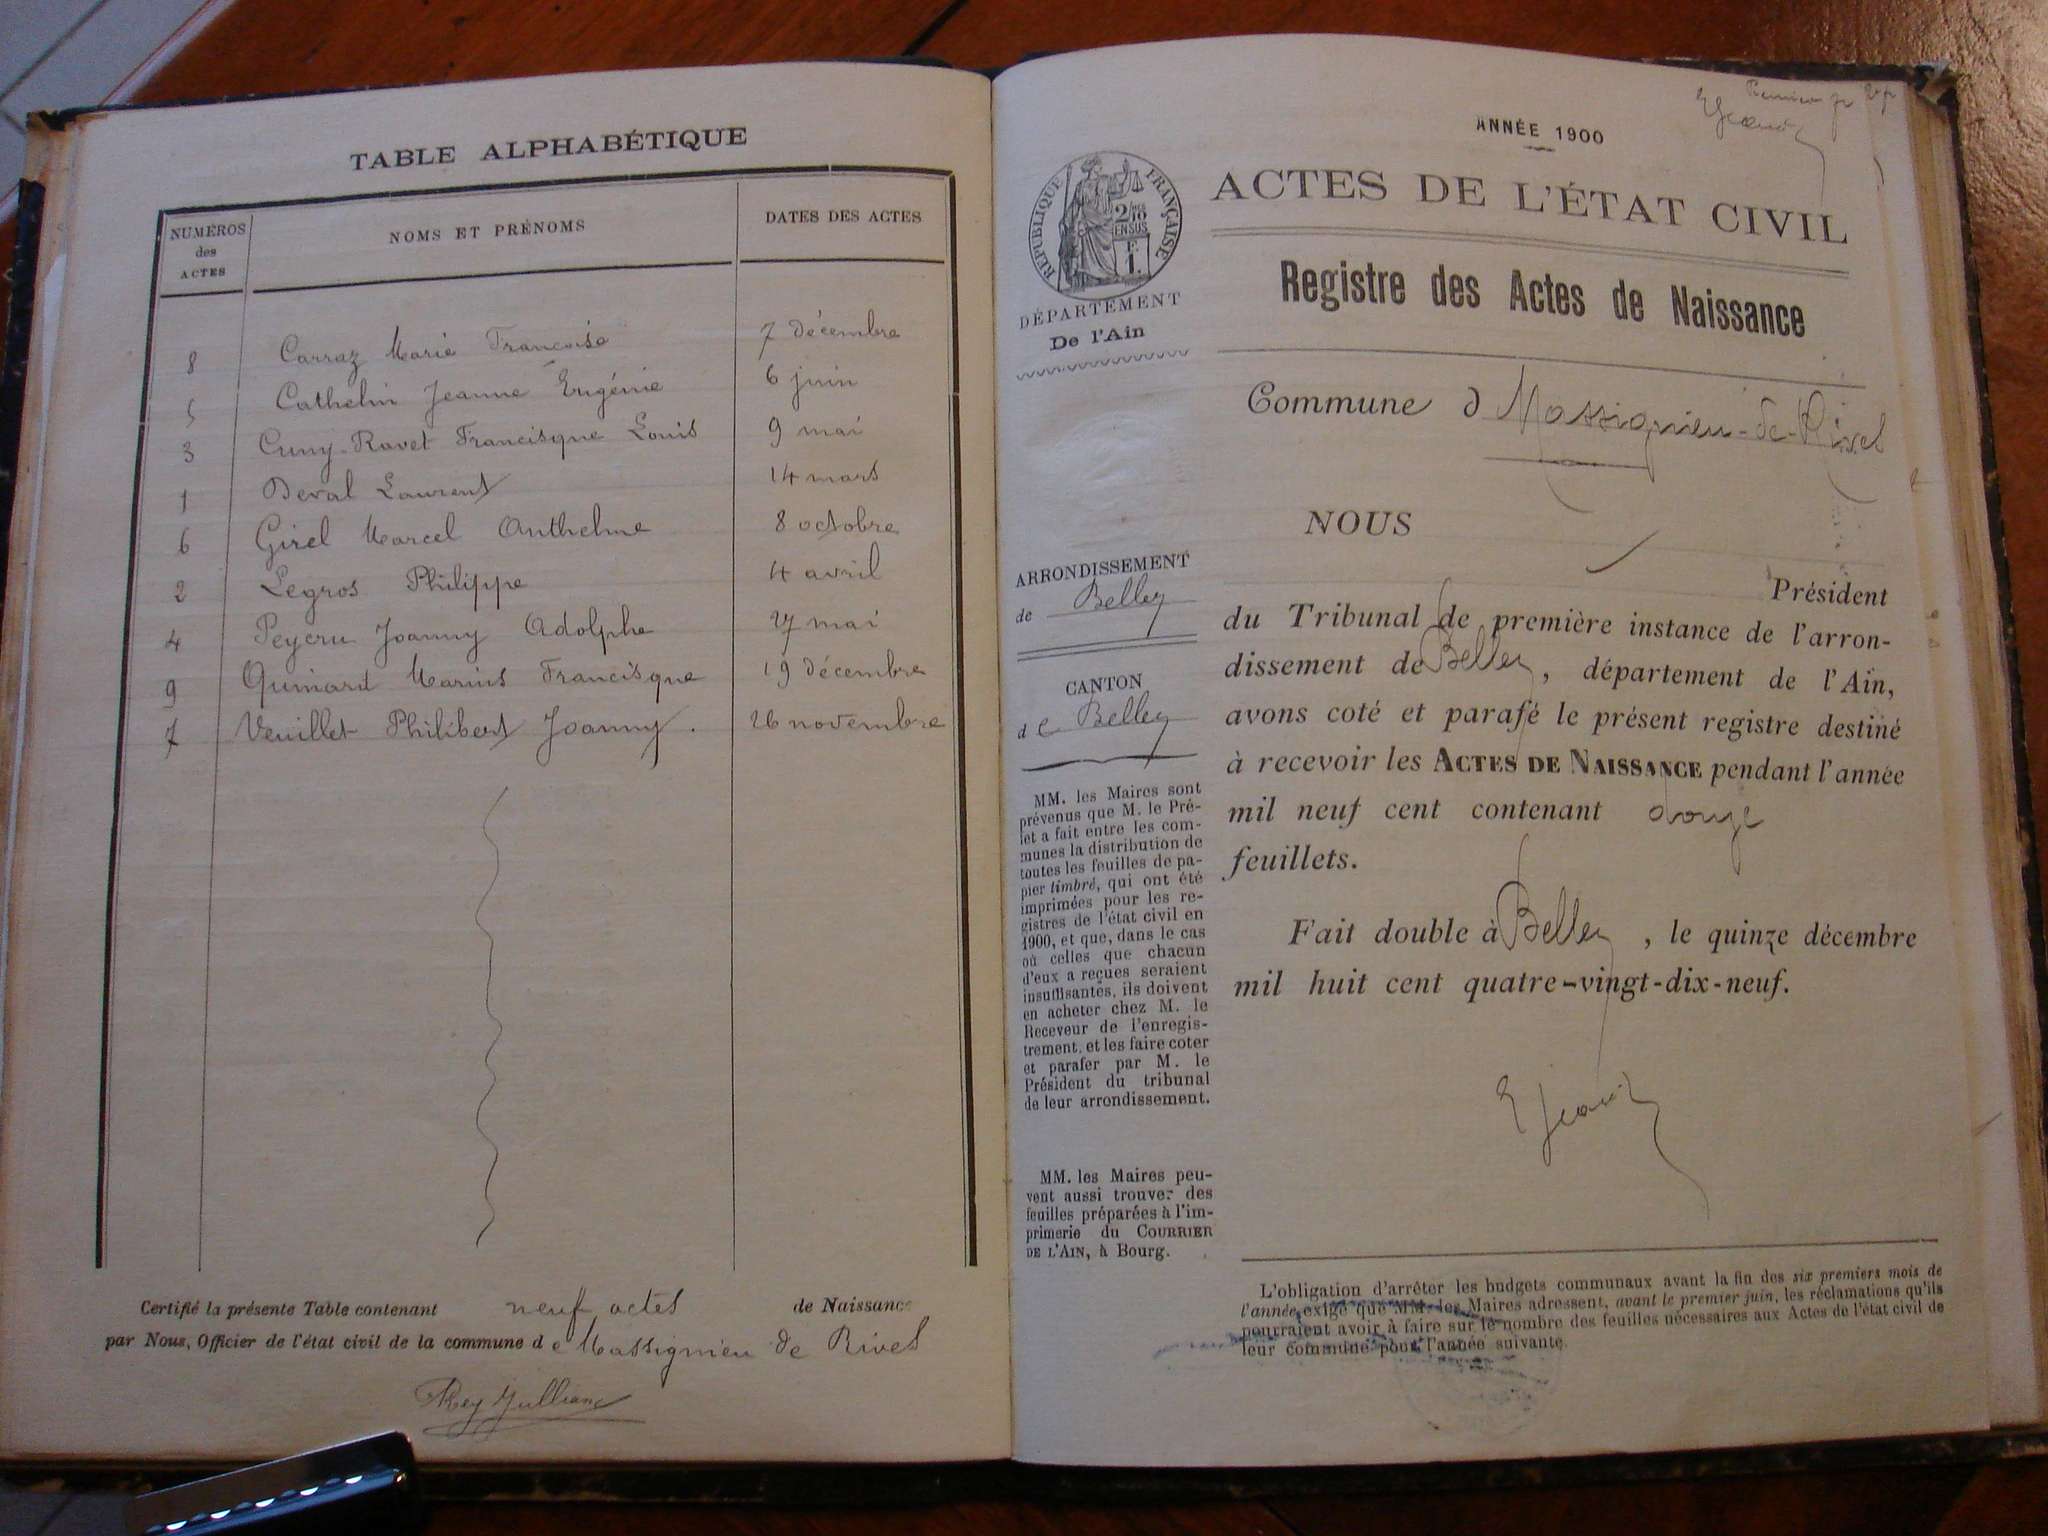 TABLE ALPHABÉTIQUE
NUMÉROS des ACTES
NOMS ET PRÉNOMS
DATES DES ACTES
8 Carraz Marie Françoise 7 décembre
5 Cathelin Jeanne Eugénie 6 juin
3 Cuny-Ravet Francisque Louis 9 mai
1 Deval Laurent 14 mars
6 Girel Marcel Anthelme 8 octobre
2 Legros Philippe 4 avril
4 Peycru Joanny Adolphe 27 mai
9 Quinard Marius Francisque 19 décembre
7 Veuillet Philibert Joanny. 26 novembre
Certifié la présente Table contenant neuf actes de Naissance
par Nous, Officier de l'état civil de la commune de Massignieu de Rives
Rey Jullian
ANNÉE 1900
RÉPUBLIQUE FRANÇAISE
DÉPARTEMENT
De l'Ain
ACTES DE L'ÉTAT CIVIL
Registre des Actes de Naissance
Commune d Massignieu-de-Rives
ARRONDISSEMENT
de Belley
CANTON
de Belley
MM. les Maires sont
prévenus que M. le Pré-
fet a fait entre les com-
munes la distribution de
toutes les feuilles de pa-
pier timbré, qui ont été
imprimées pour les re-
gistres de l'état civil en
1900, et que, dans le cas
où celles que chacun
d'eux a reçues seraient
insuffisantes, ils doivent
en acheter chez M. le
Receveur de l'enregis-
trement, et les faire coter
et parafer par M. le
Président du tribunal
de leur arrondissement.
MM. les Maires peu-
vent aussi trouver des
feuilles préparées à l'im-
primerie du COURRIER
DE L'AIN, à Bourg.
NOUS
Président
du Tribunal de première instance de l'arron-
dissement de Belley, département de l'Ain,
avons coté et parafé le présent registre destiné
à recevoir les ACTES DE NAISSANCE pendant l'année
mil neuf cent contenant douze
feuillets.
Fait double à Belley, le quinze décembre
mil huit cent quatre-vingt-dix-neuf.
L'obligation d'arrêter les budgets communaux avant la fin des six premiers mois de
l'année exige que MM. les Maires adressent, avant le premier juin, les réclamations qu'ils
pourraient avoir à faire sur le nombre des feuilles nécessaires aux Actes de l'état civil de
leur commune pour l'année suivante.